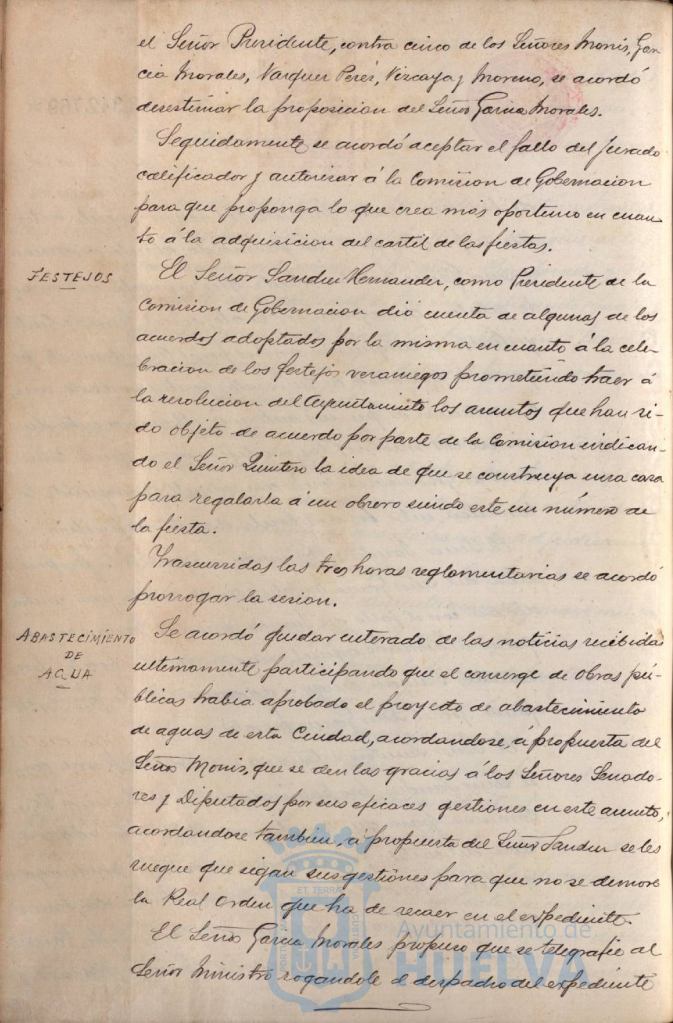 el Señor Presidente, contra cinco de los Señores Monis, Gar-
cia Morales, Vazquez Perez, Vizcaya y Moreno, se acordó
desestimar la proposicion del Señor Garcia Morales.
Seguidamente se acordó aceptar el fallo del Jurado
calificador y autorizar á la Comision de Gobernacion
para que proponga lo que crea más oportuno en cuan-
to á la adquisicion del cartel de las fiestas.
FESTEJOS
El Señor Sanchez Hernandez, como Presidente de la
Comision de Gobernacion dió cuenta de algunos de los
acuerdos adoptados por la misma en cuanto á la cele-
bracion de los festejos veraniegos prometiendo traer á
la resolucion del Ayuntamiento los asuntos que han si-
do objeto de acuerdo por parte de la Comision indican-
do el Señor Quintero la idea de que se construya una casa
para regalarla á un obrero siendo este un número de
la fiesta.
Trascurridas las tres horas reglamentarias se acordó
prorrogar la sesion.
ABASTECIMIENTO
DE
AGUA
Se acordó quedar enterado de las noticias recibidas
ultimamente participando que el consejo de Obras pú-
blicas habia aprobado el proyecto de abastecimiento
de aguas de esta Ciudad, acordandose, á propuesta del
Señor Monis, que se den las gracias á los Señores Senado-
res y Diputados por sus eficaces gestiones en este asunto,
acordandose tambien, á propuesta del Señor Sanchez se les
ruegue que sigan sus gestiones para que no se demore
la Real Orden que ha de recaer en el expediente.
El Señor Garcia Morales propuso que se telegrafie al
Señor Ministro rogandole el despacho del expediente
Ayuntamiento de
HUELVA